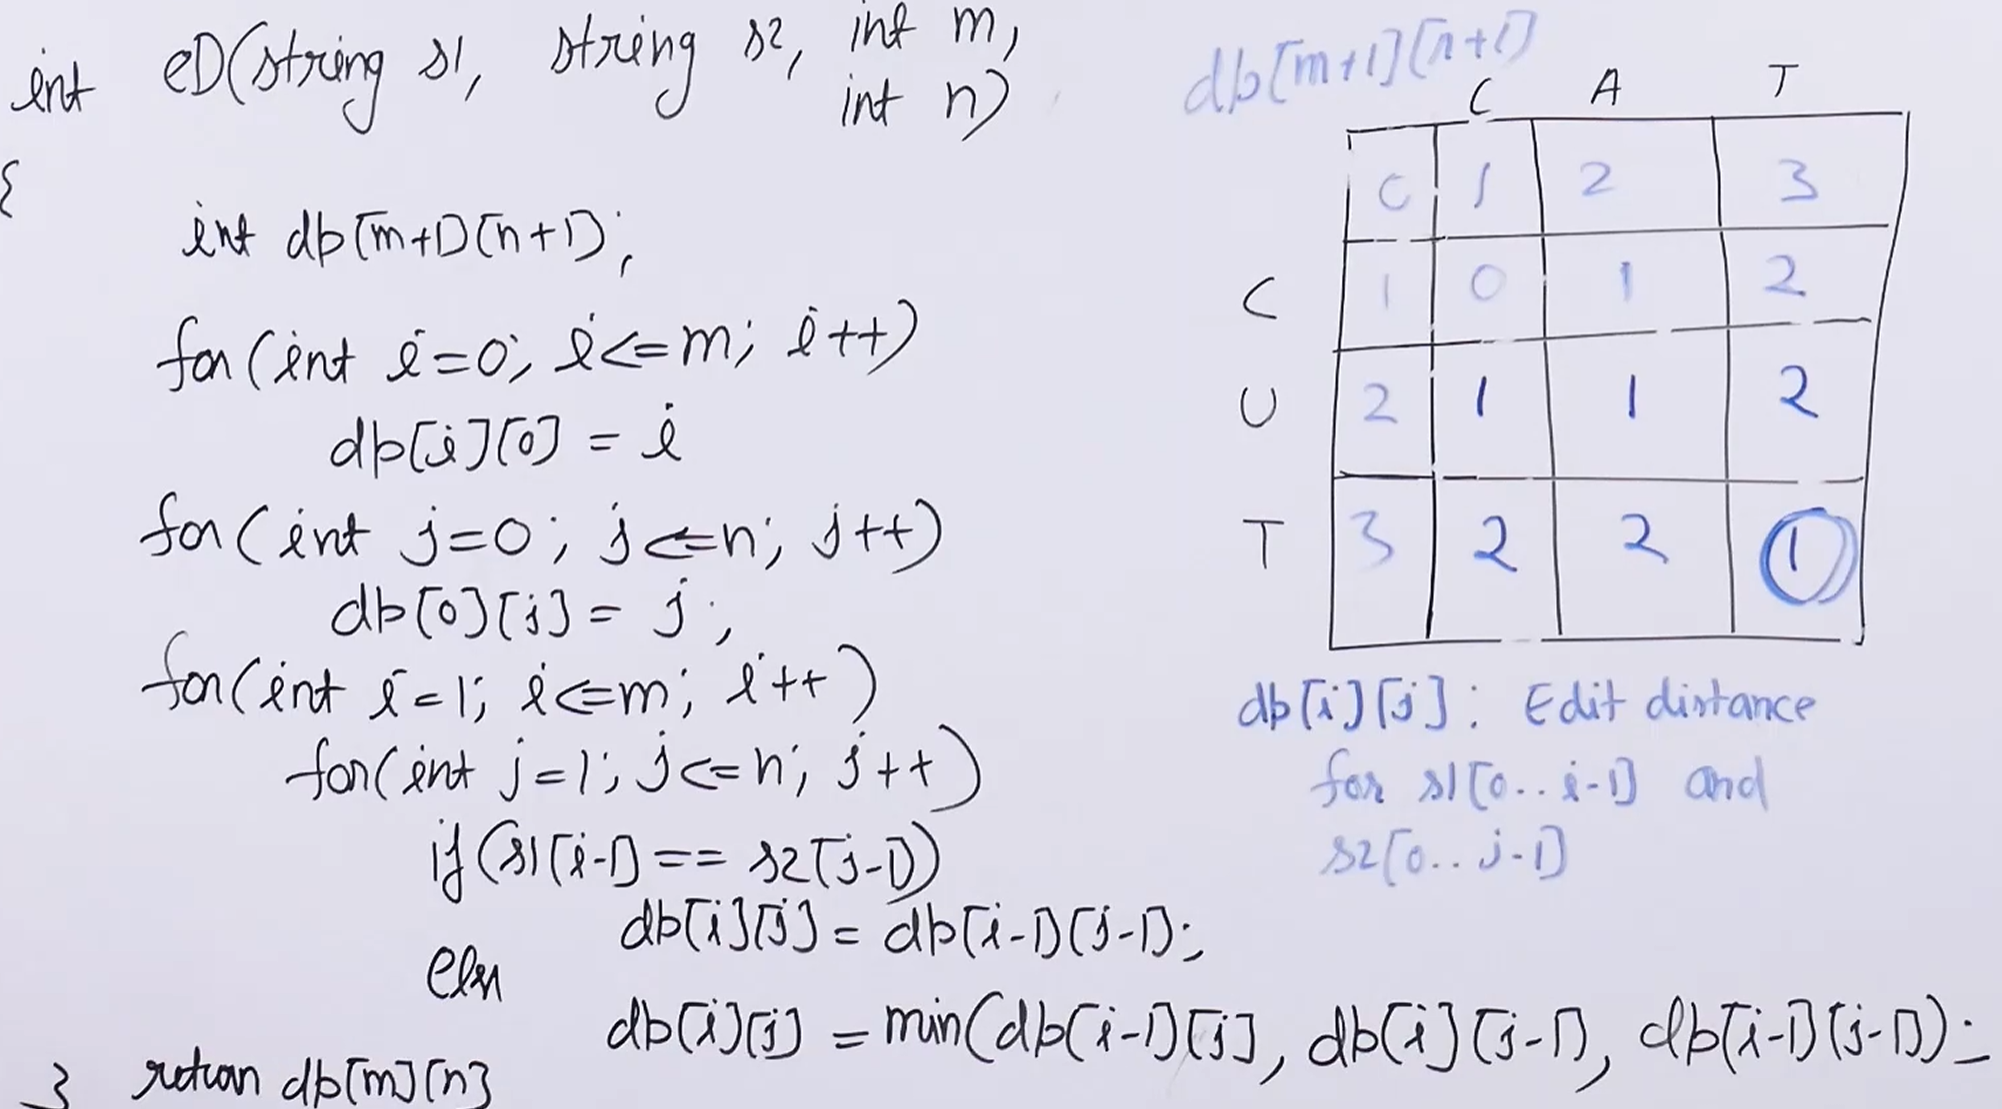 int eD(string s1, string s2, int m,
int n)
{
int dp[m+1][n+1];
for(int i=0; i<=m; i++)
dp[i][0] = i
for(int j=0; j<=n; j++)
dp[0][j] = j;
for(int i=1; i<=m; i++)
for(int j=1; j<=n; j++)
if(s1[i-1] == s2[j-1])
dp[i][j] = dp[i-1][j-1];
else
dp[i][j] = min(dp[i-1][j], dp[i][j-1], dp[i-1][j-1]);
} return dp[m][n]
dp[m+1][n+1]
C A T
0 1 2 3
C 1 0 1 2
U 2 1 1 2
T 3 2 2 1
dp[i][j]: Edit distance
for s1[0..i-1] and
s2[0..j-1]